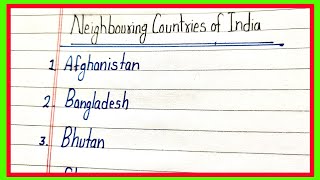 Neighbouring Countries of India
1. Afghanistan
2. Bangladesh
3. Bhutan